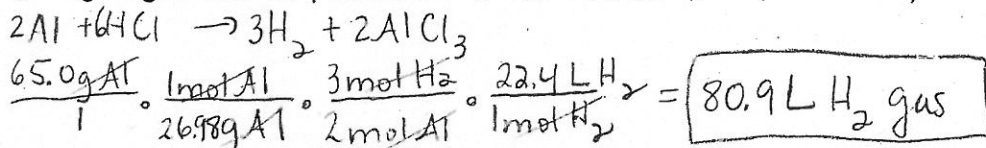 2Al + 6HCl → 3H₂ + 2AlCl₃
65.0g Al/1 • 1mol Al/26.98g Al • 3mol H₂/2mol Al • 22.4 L H₂/1mol H₂ = 80.9 L H₂ gas